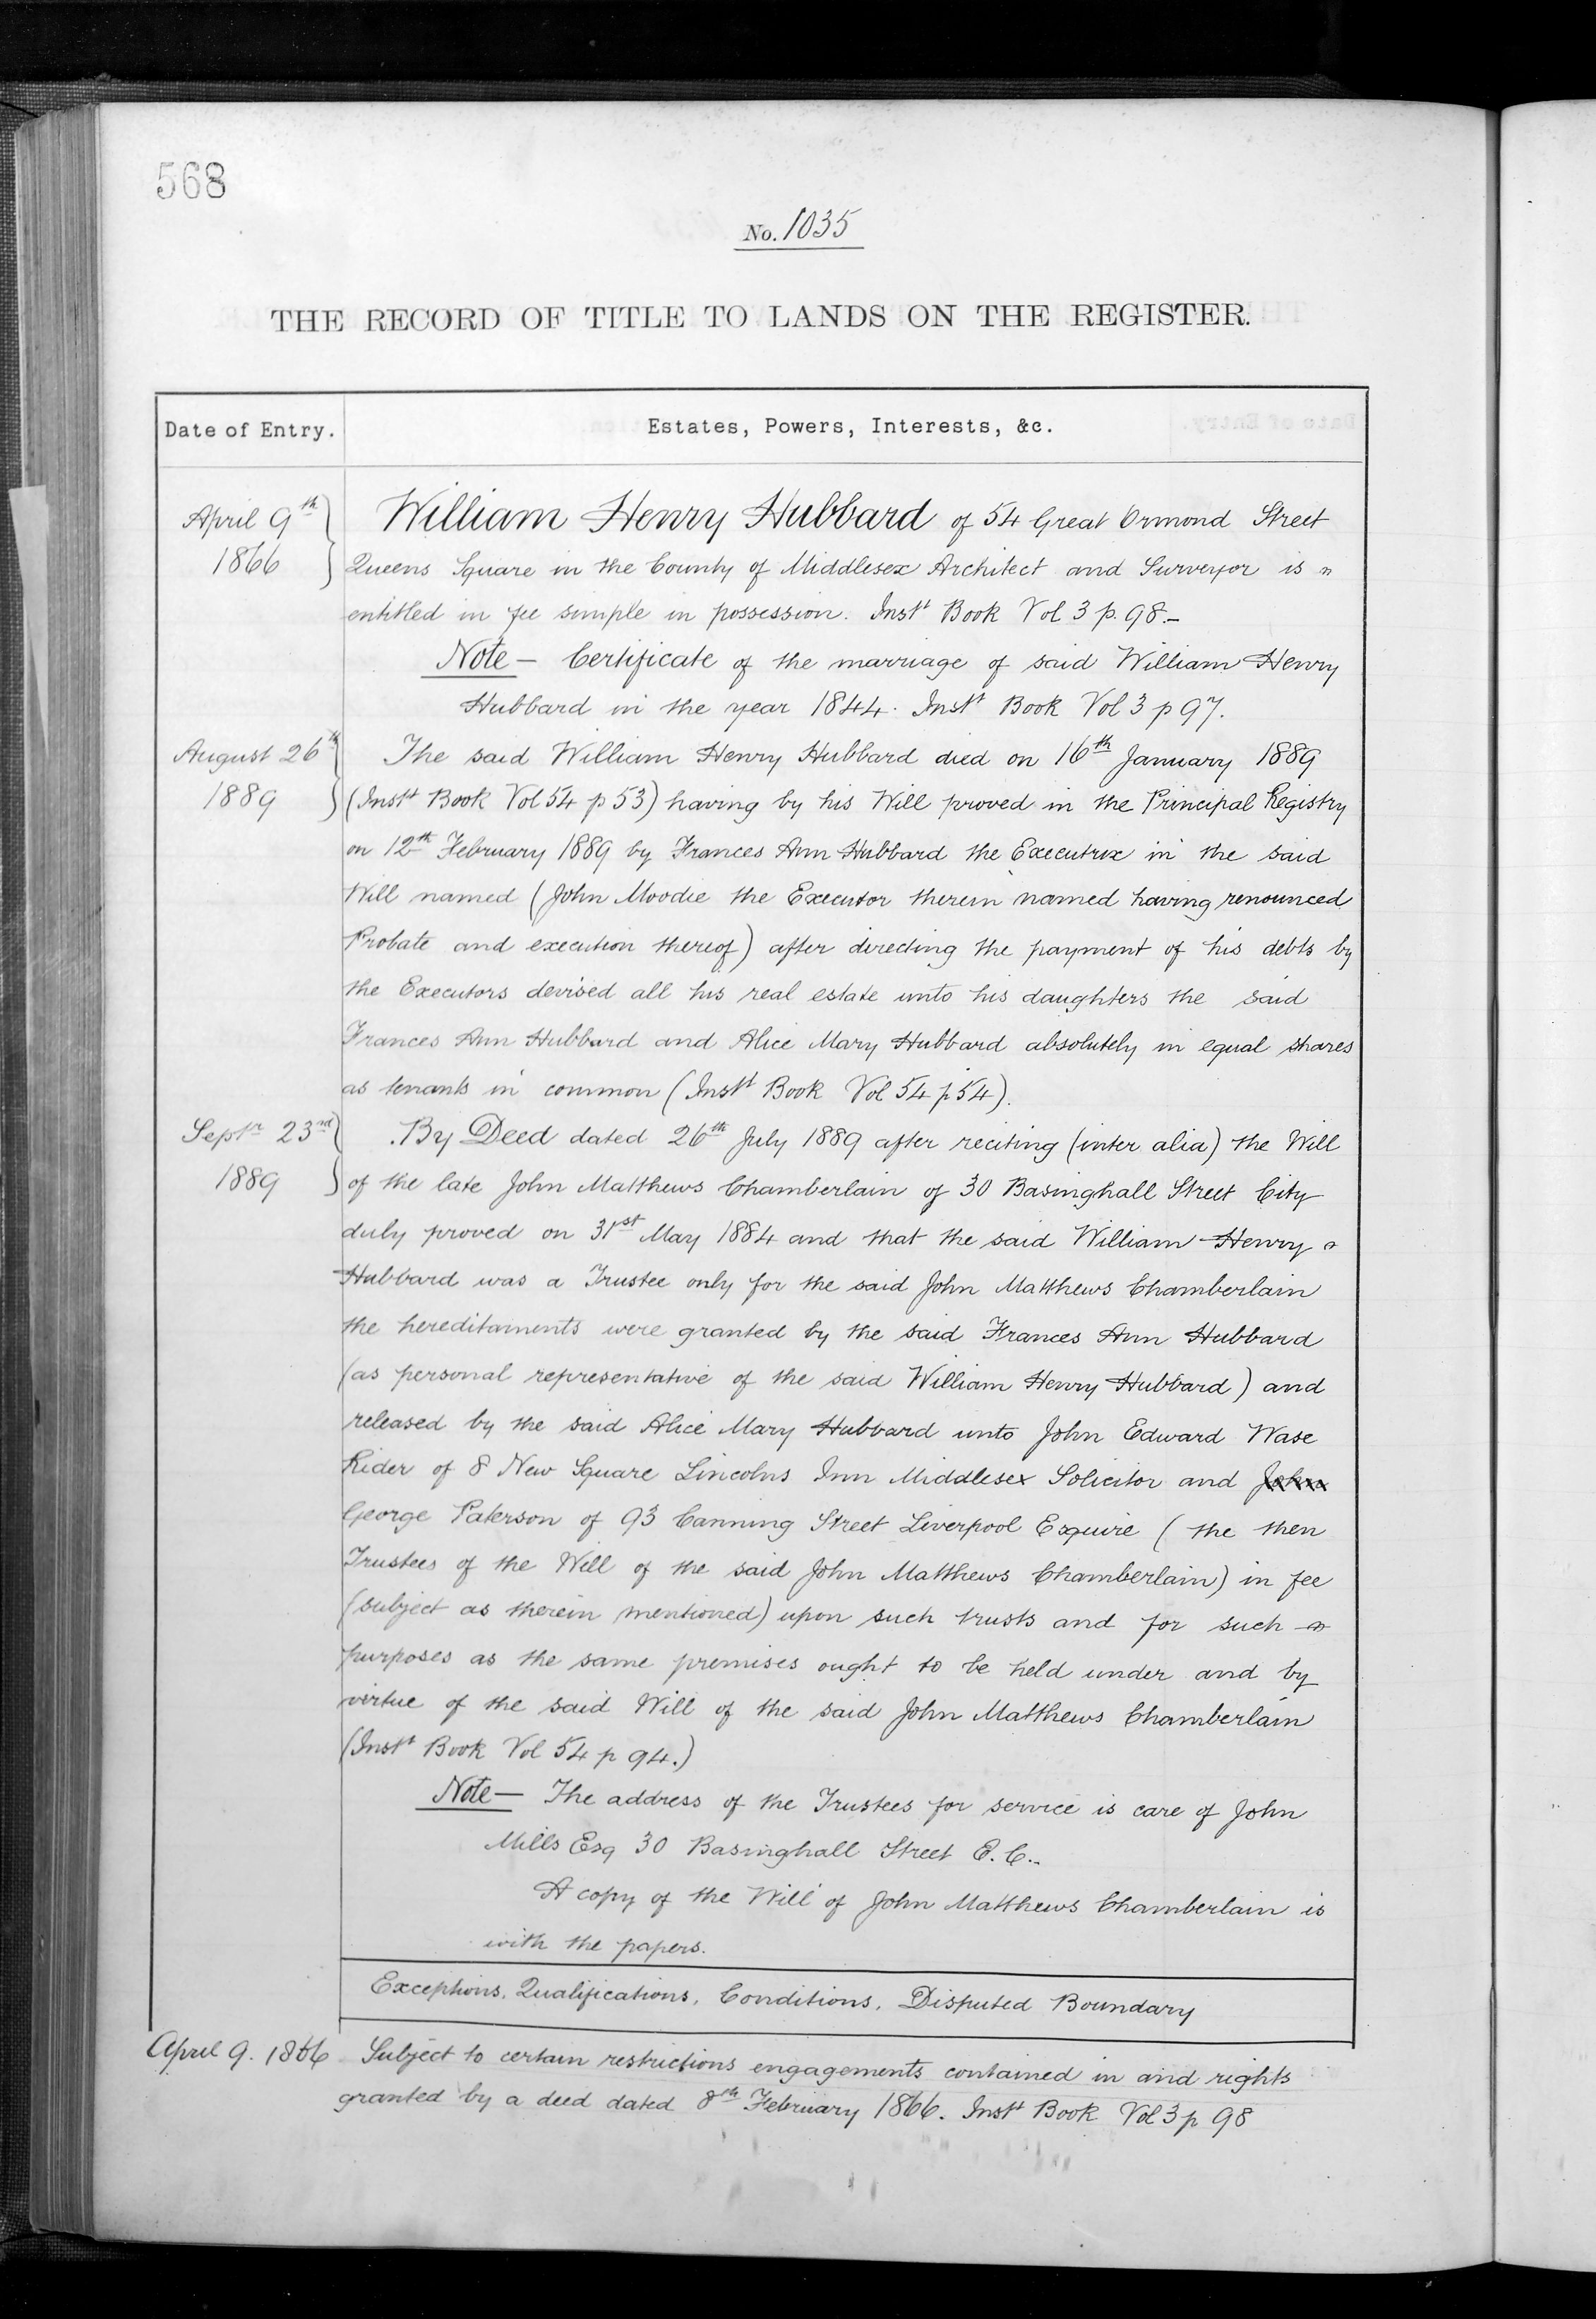 568
No. 1035
THE RECORD OF TITLE TO LANDS ON THE REGISTER.
Date of Entry.
Estates, Powers, Interests, &c.
April 9th 1866
William Henry Hubbard of 54 Great Ormond Street
Queens Square in the County of Middlesex Architect and Surveyor is
entitled in fee simple in possession. Instt Book Vol 3 p. 98.-
Note - Certificate of the marriage of said William Henry
Hubbard in the year 1844. Instt Book Vol 3 p 97.
August 26th 1889
The said William Henry Hubbard died on 16th January 1889
(Instt Book Vol 54 p 53) having by his Will proved in the Principal Registry
on 12th February 1889 by Frances Ann Hubbard the Executrix in the said
Will named (John Moodie the Executor therein named having renounced
Probate and execution thereof) after directing the payment of his debts by
the Executors devised all his real estate unto his daughters the said
Frances Ann Hubbard and Alice Mary Hubbard absolutely in equal shares
as tenants in common (Instt Book Vol 54 p 54).
Septr 23rd 1889
By Deed dated 26th July 1889 after reciting (inter alia) the Will
of the late John Matthews Chamberlain of 30 Basinghall Street City
duly proved on 31st May 1884 and that the said William Henry
Hubbard was a Trustee only for the said John Matthews Chamberlain
the hereditaments were granted by the said Frances Ann Hubbard
(as personal representative of the said William Henry Hubbard) and
released by the said Alice Mary Hubbard unto John Edward Wase
Rider of 8 New Square Lincolns Inn Middlesex Solicitor and John
George Paterson of 93 Canning Street Liverpool Esquire (the then
Trustees of the Will of the said John Matthews Chamberlain) in fee
(subject as therein mentioned) upon such trusts and for such
purposes as the same premises ought to be held under and by
virtue of the said Will of the said John Matthews Chamberlain
(Instt Book Vol 54 p 94.)
Note - The address of the Trustees for service is care of John
Mills Esq 30 Basinghall Street E.C..
A copy of the Will of John Matthews Chamberlain is
with the papers.
Exceptions, Qualifications, Conditions, Disputed Boundary
April 9. 1866 Subject to certain restrictions engagements contained in and rights
granted by a deed dated 8th February 1866. Instt Book Vol 3 p 98